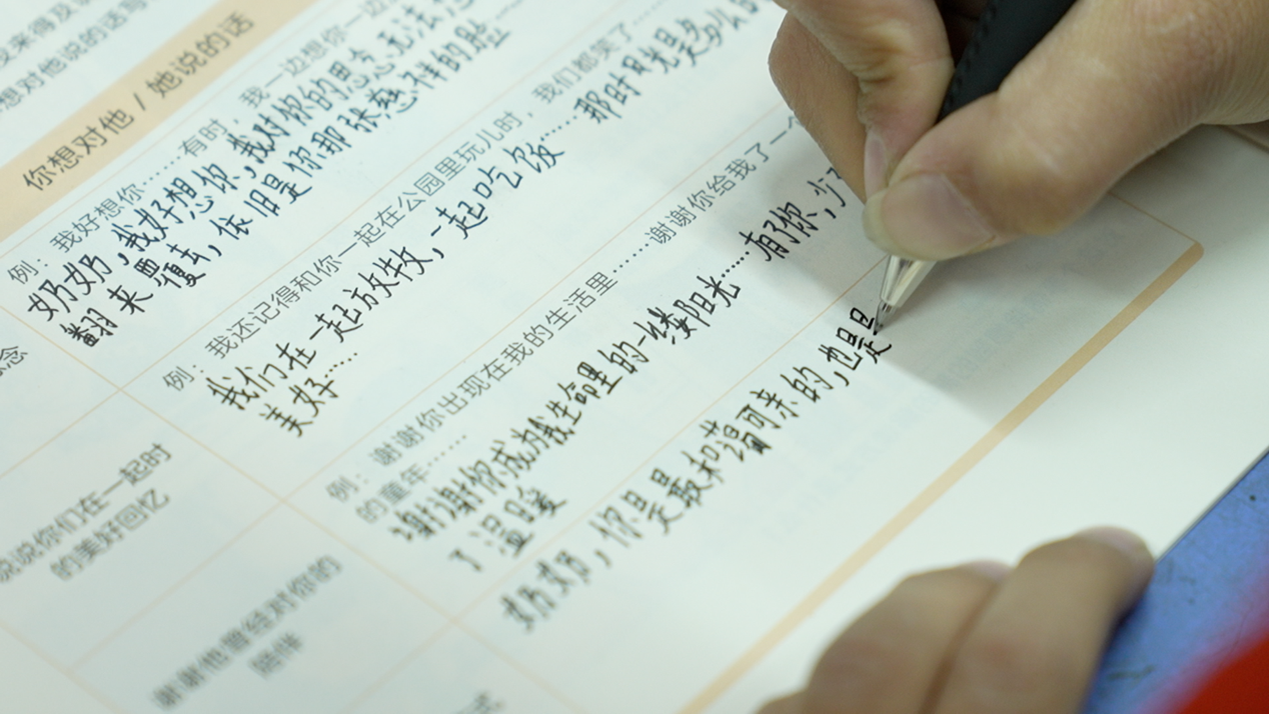 没来得及
想对他说的话写
你想对他 / 她说的话
例：我好想你……有时，我一边想你一边
奶奶，我好想你，我对你的思念无法
翻来覆去，依旧是你那张慈祥的脸
念
例：我还记得和你一起在公园里玩儿时，我们都笑了……
我们在一起放牧，一起吃饭……那时日光是多么的
美好……
说说你们在一起时
的美好回忆
例：谢谢你出现在我的生活里……谢谢你给我了一个
的童年……
谢谢你成为我生命里的一缕阳光……有了你，少了
了温暖
谢谢他曾经对你的
陪伴
奶奶，你是最和蔼可亲的，也是
式